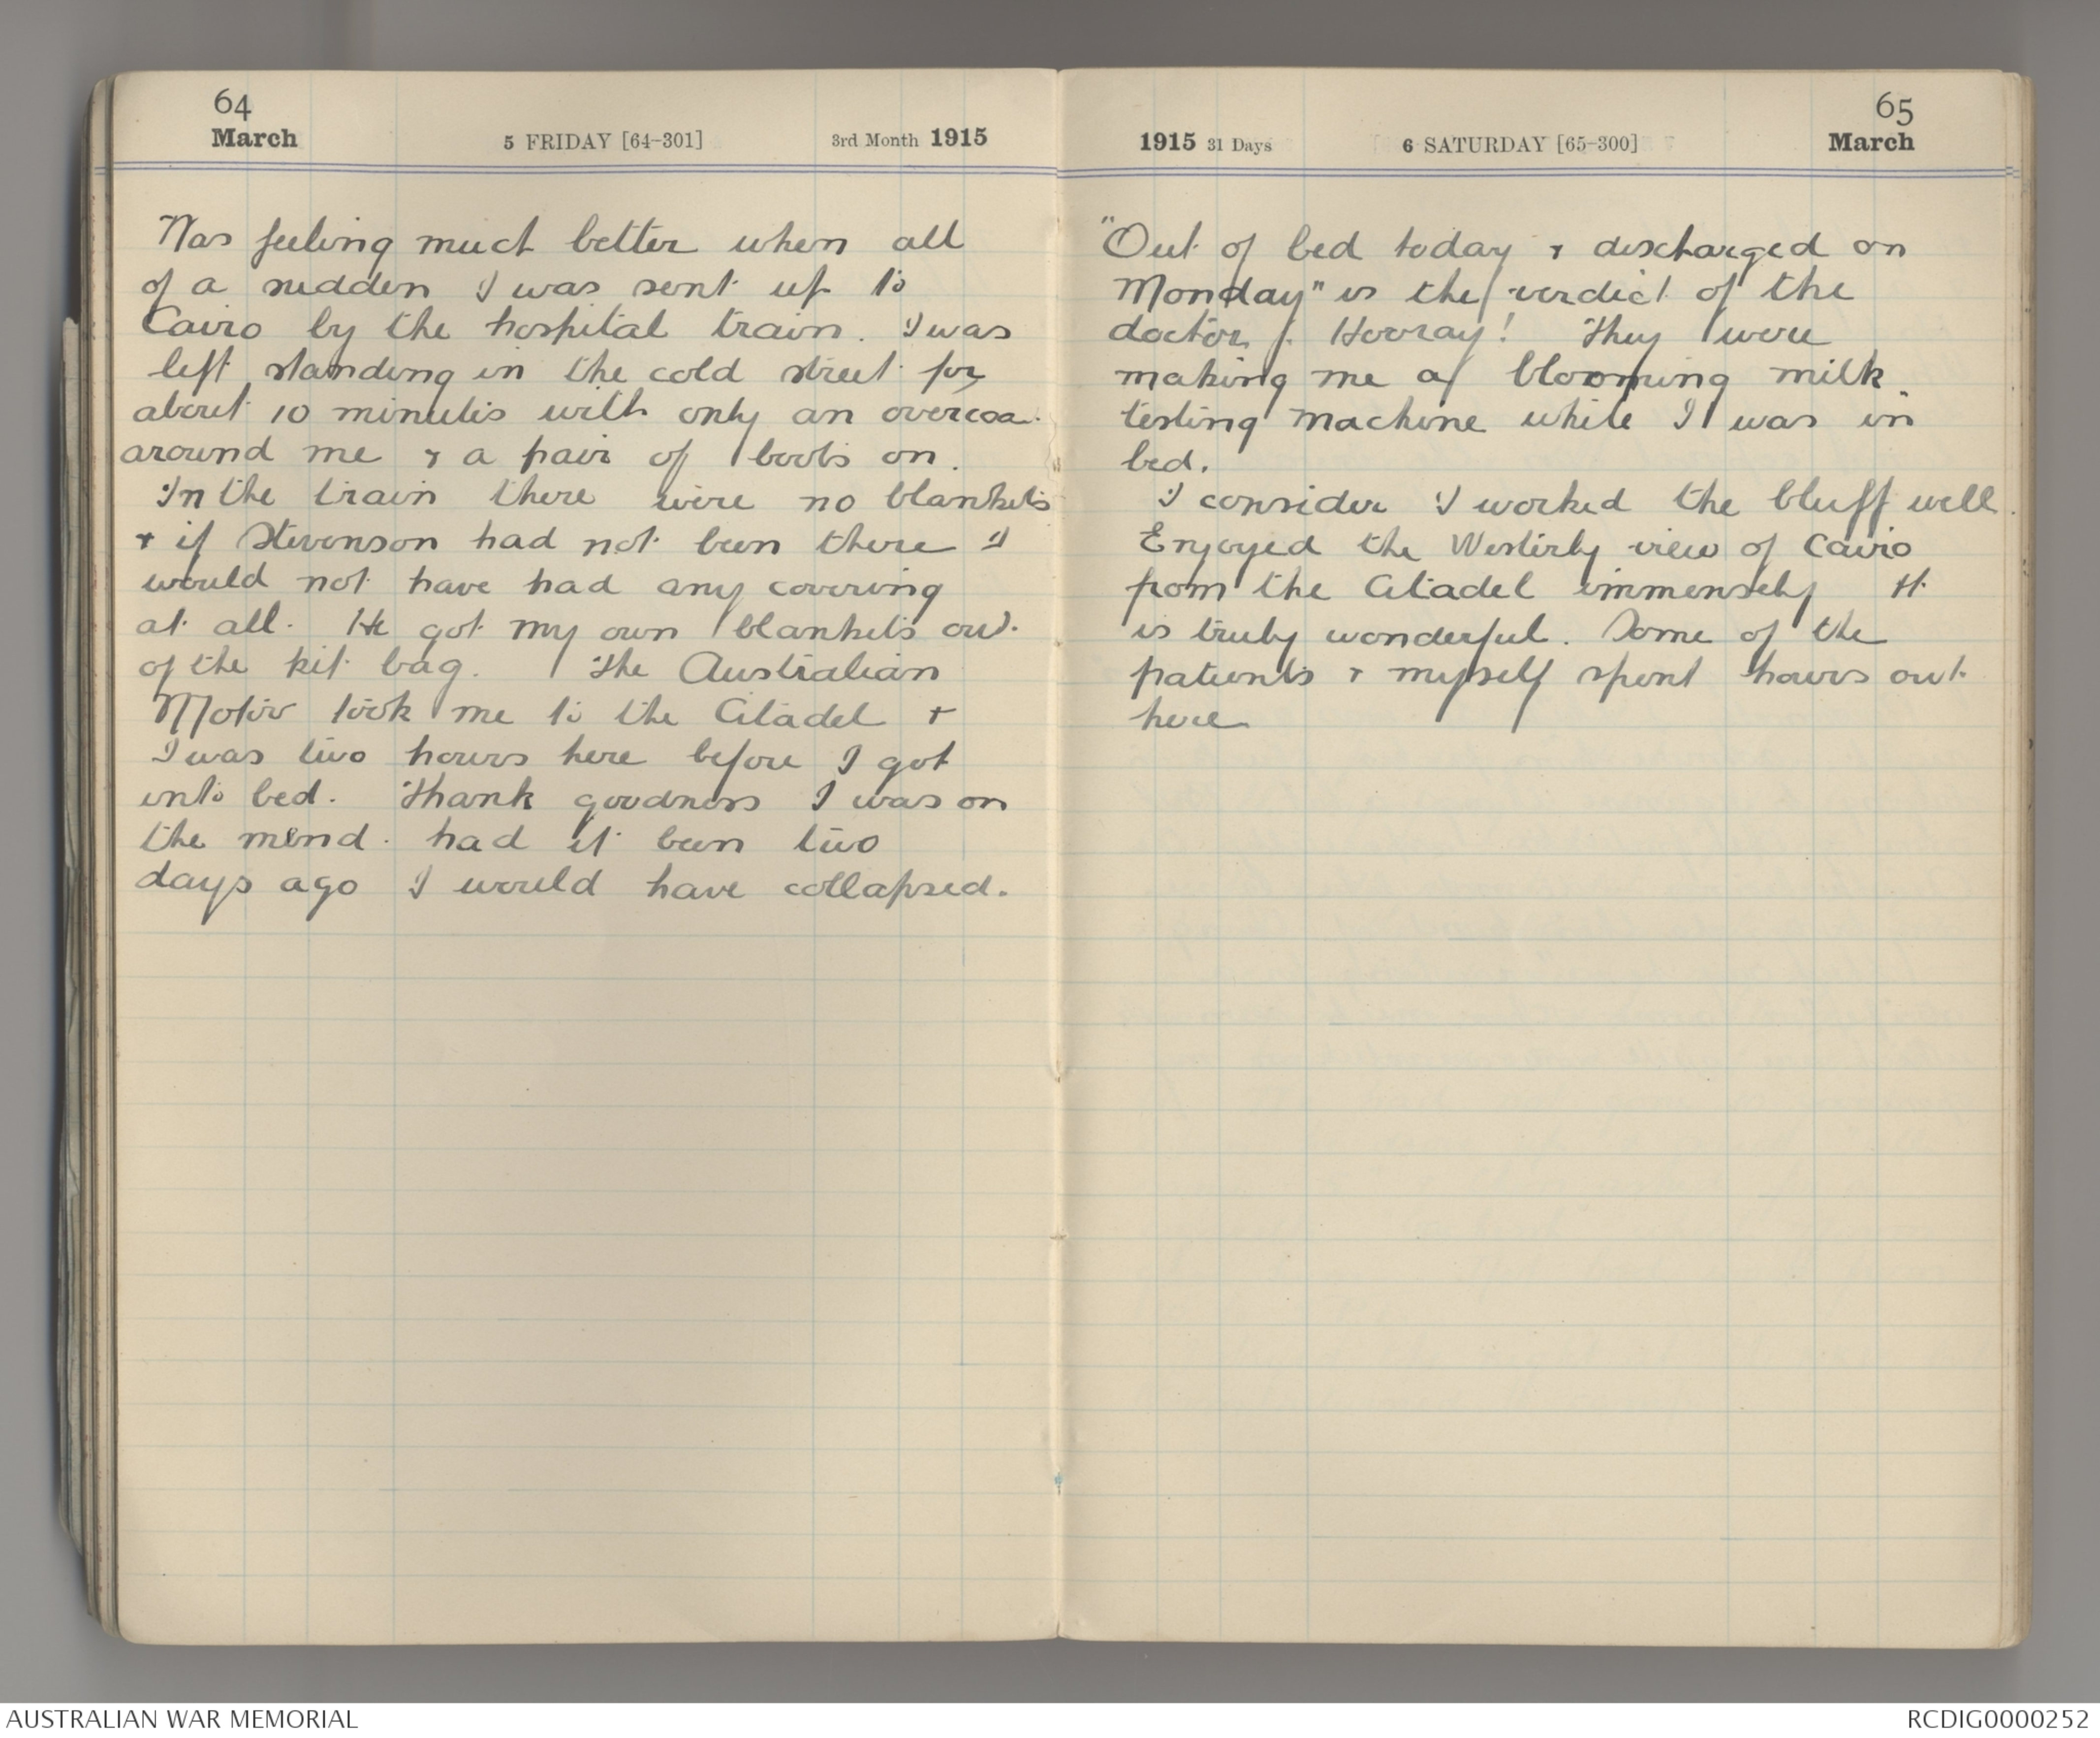 64
March 5 FRIDAY [64-301] 3rd Month 1915
Was feeling much better when all
of a sudden I was sent up to
Cairo by the hospital train. I was
left standing in the cold street for
about 10 minutes with only an overcoa
around me & a pair of boots on.
In the train there were no blankets
& if Stevenson had not been there I
would not have had any covering
at all. He got my own blankets out
of the kit bag. The Australian
Motor took me to the Citadel &
I was two hours here before I got
into bed. Thank goodness I was on
the mend. had it been two
days ago I would have collapsed.
65
1915 31 Days 6 SATURDAY [65-300] March
"Out of bed today & discharged on
Monday" is the verdict of the
doctor. Hooray! They were
making me a blooming milk
testing machine while I was in
bed.
I consider I worked the bluff well.
Enjoyed the Westerly view of Cairo
from the Citadel immensely It
is truly wonderful. Some of the
patients & myself spent hours out
here
AUSTRALIAN WAR MEMORIAL RCDIG0000252